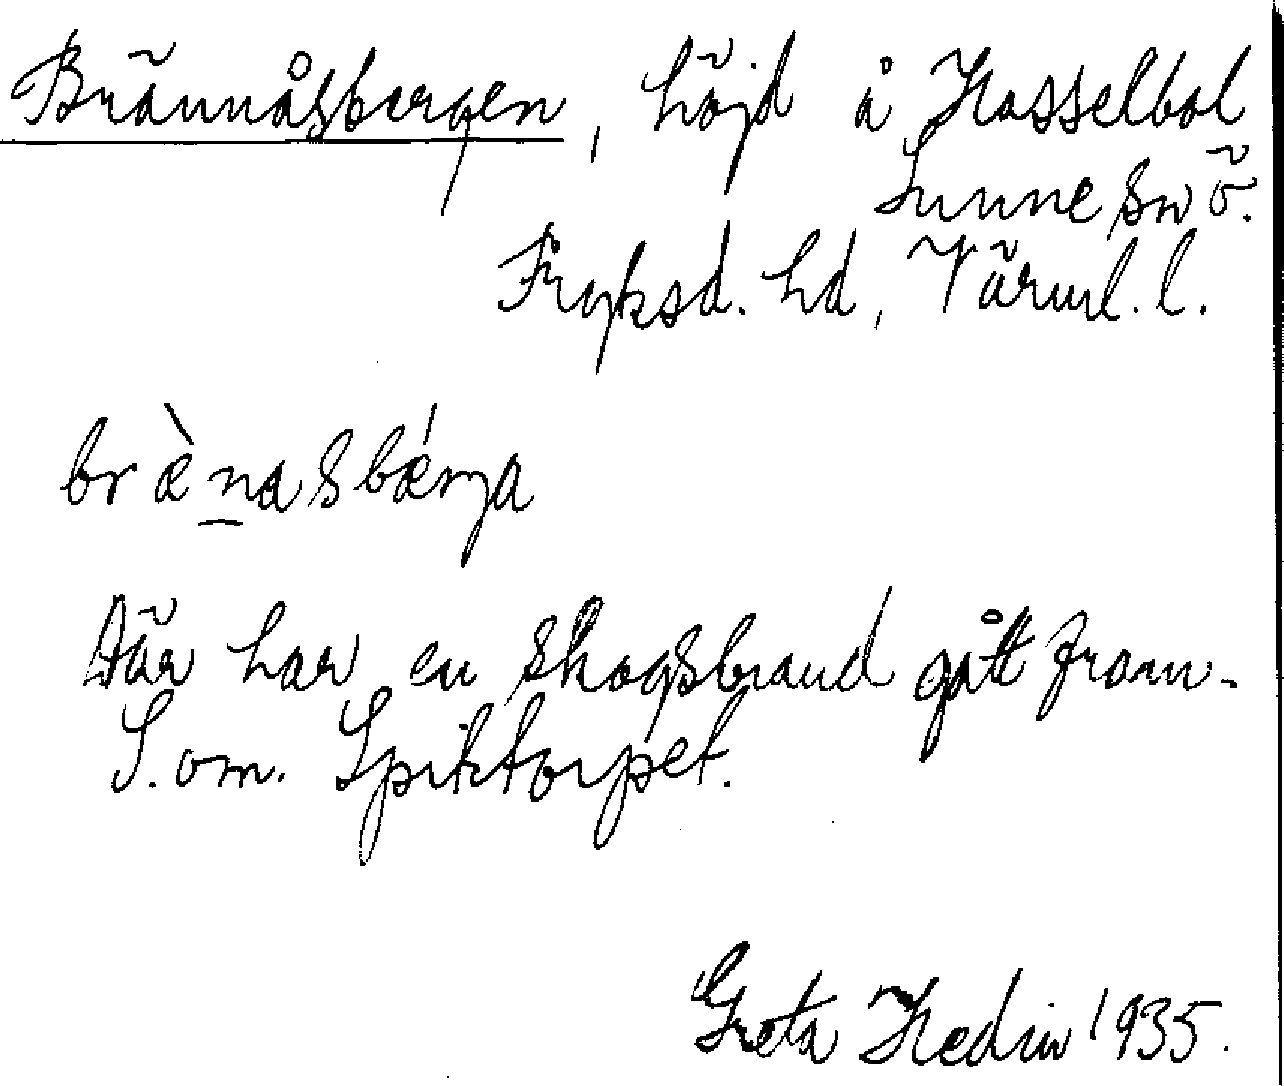 Brännåsbergen, höjd å Hasselbol
Sunne sn ö.
Fryksd. hd, Värml. l.
brὰnasbǽrja
Där har en skogsbrand gått fram.
S. om. Spiktorpet.
Greta Hedin 1935.